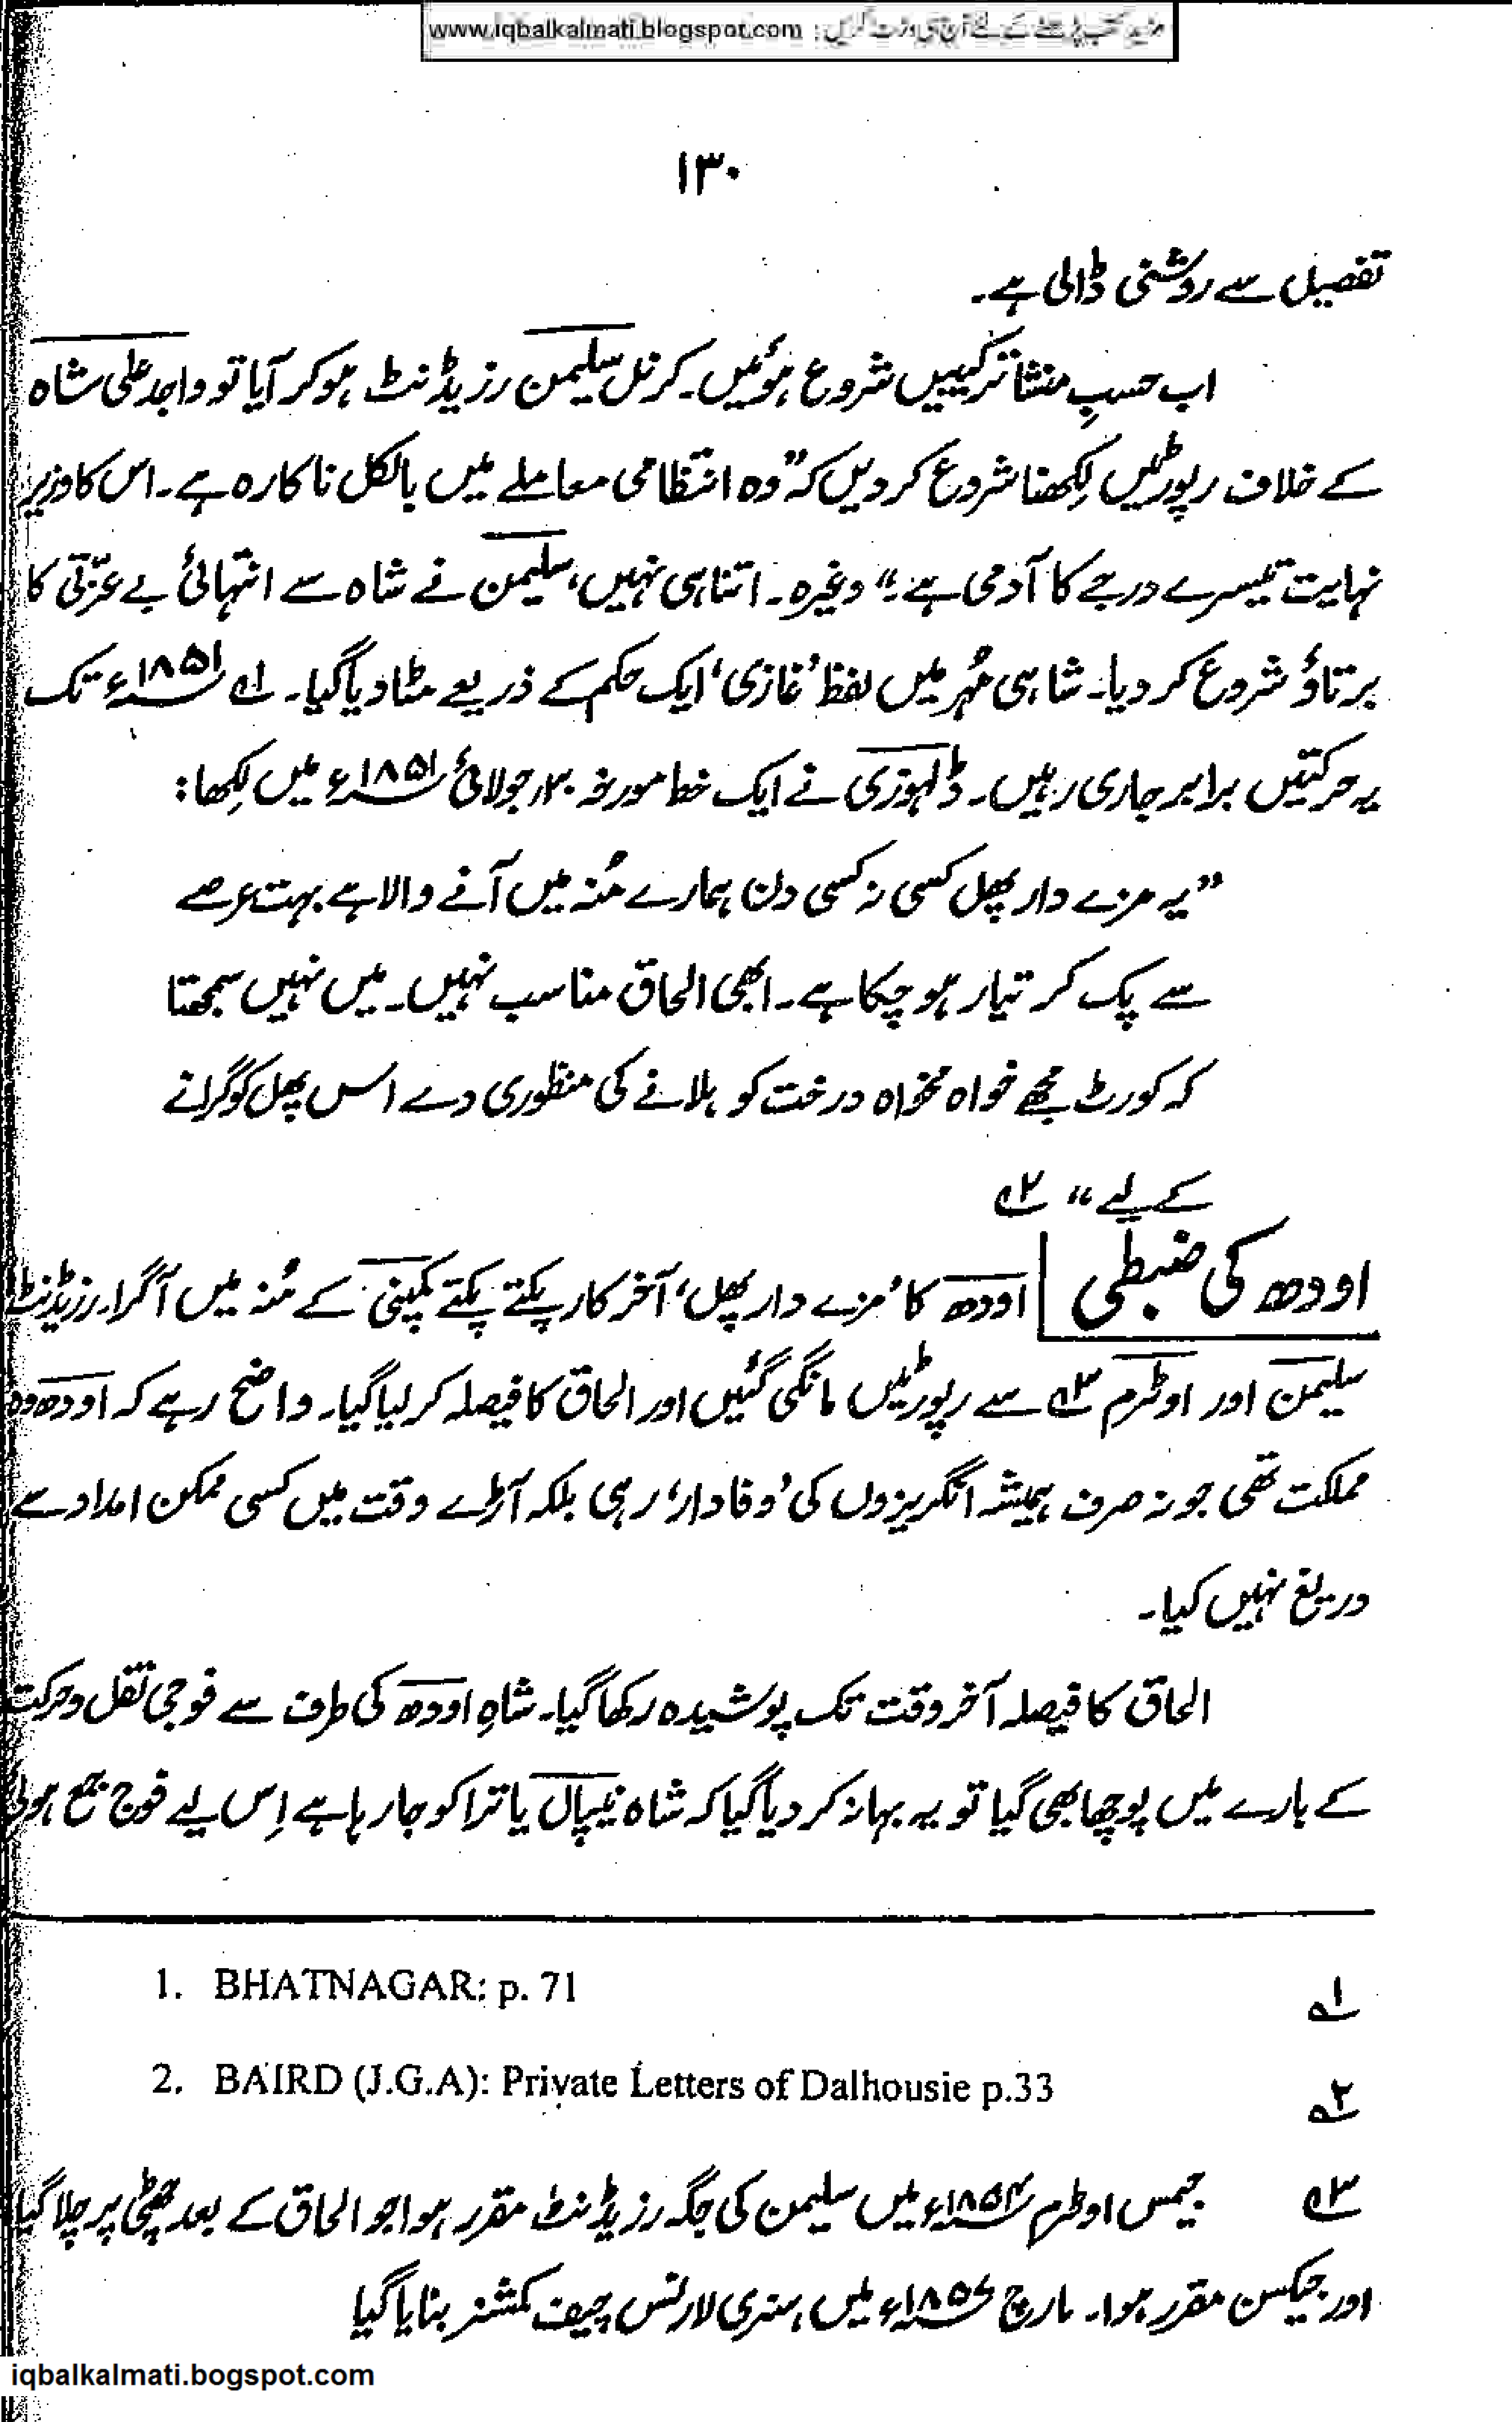 مزید کتب پڑھنے کے لئے آج ہی وزٹ کریں : www.iqbalkalmati.blogspot.com
۱۳۰
تفصیل سے روشنی ڈالی ہے۔
اب حسبِ منشا ترکیبیں شروع ہوئیں۔ کرنل سلیمن رزیڈنٹ ہو کر آیا تو واجد علی شاہ
کے خلاف رپورٹیں لکھنا شروع کر دیں کہ ”وہ انتظامی معاملے میں بالکل ناکارہ ہے۔ اس کا وزیر
نہایت تیسرے درجے کا آدمی ہے“ وغیرہ۔ اتنا ہی نہیں، سلیمن نے شاہ سے انتہائی بے عزّتی کا
برتاؤ شروع کر دیا۔ شاہی مُہر میں لفظ ’غازی‘ ایک حکم کے ذریعے مٹا دیا گیا۔ ۱؎ ۱۸۵۱ء تک
یہ حرکتیں برابر جاری رہیں۔ ڈلہوزی نے ایک خط مورخہ ۳۰ر جولائی ۱۸۵۱ء میں لکھا:
”یہ مزے دار پھل کسی نہ کسی دن ہمارے مُنہ میں آنے والا ہے بہت عرصے
سے پک کر تیار ہو چکا ہے۔ ابھی الحاق مناسب نہیں۔ میں نہیں سمجھتا
کہ کورٹ مجھے خواہ مخواہ درخت کو ہلانے کی منظوری دے اس پھل کو گرانے
کے لیے“ ۲؎
اودھ کی ضبطی اودھ کا ’مزے دار پھل‘ آخر کار پکتے پکتے کمپنی کے مُنہ میں آ گرا۔ رزیڈنٹ
سلیمن اور اوٹرم ۳؎ سے رپورٹیں مانگی گئیں اور الحاق کا فیصلہ کر لیا گیا۔ واضح رہے کہ اودھ وہ
مملکت تھی جو نہ صرف ہمیشہ انگریزوں کی ’وفادار‘ رہی بلکہ آڑے وقت میں کسی ممکن امداد سے
دریغ نہیں کیا۔
الحاق کا فیصلہ آخر وقت تک پوشیدہ رکھا گیا۔ شاہِ اودھ کی طرف سے فوجی نقل و حرکت
کے بارے میں پوچھا بھی گیا تو یہ بہانہ کر دیا گیا کہ شاہ نیپال یاترا کو جا رہا ہے اِس لیے فوج جمع ہوئی
1. BHATNAGAR: p. 71 ۱؎
2. BAIRD (J.G.A): Private Letters of Dalhousie p.33 ۲؎
۳؎ جیمس اوٹرم ۱۸۵۴ء میں سلیمن کی جگہ رزیڈنٹ مقرر ہوا جو الحاق کے بعد چھٹی پر چلا گیا
اور جیکسن مقرر ہوا۔ مارچ ۱۸۵۷ء میں ہنری لارنس چیف کمشنر بنایا گیا
iqbalkalmati.bogspot.com